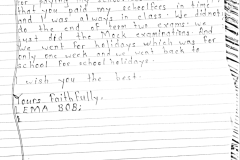 for paying my school
that you paid my schoolfees in time.
and I was always in class. We didnot
do the end of term two exams we
just did the Mock examinations. And
we went for holidays which was for
only one week and we went back to
school for school holidays.
I wish you the best.
Yours Faithfully,
EMA BOB.